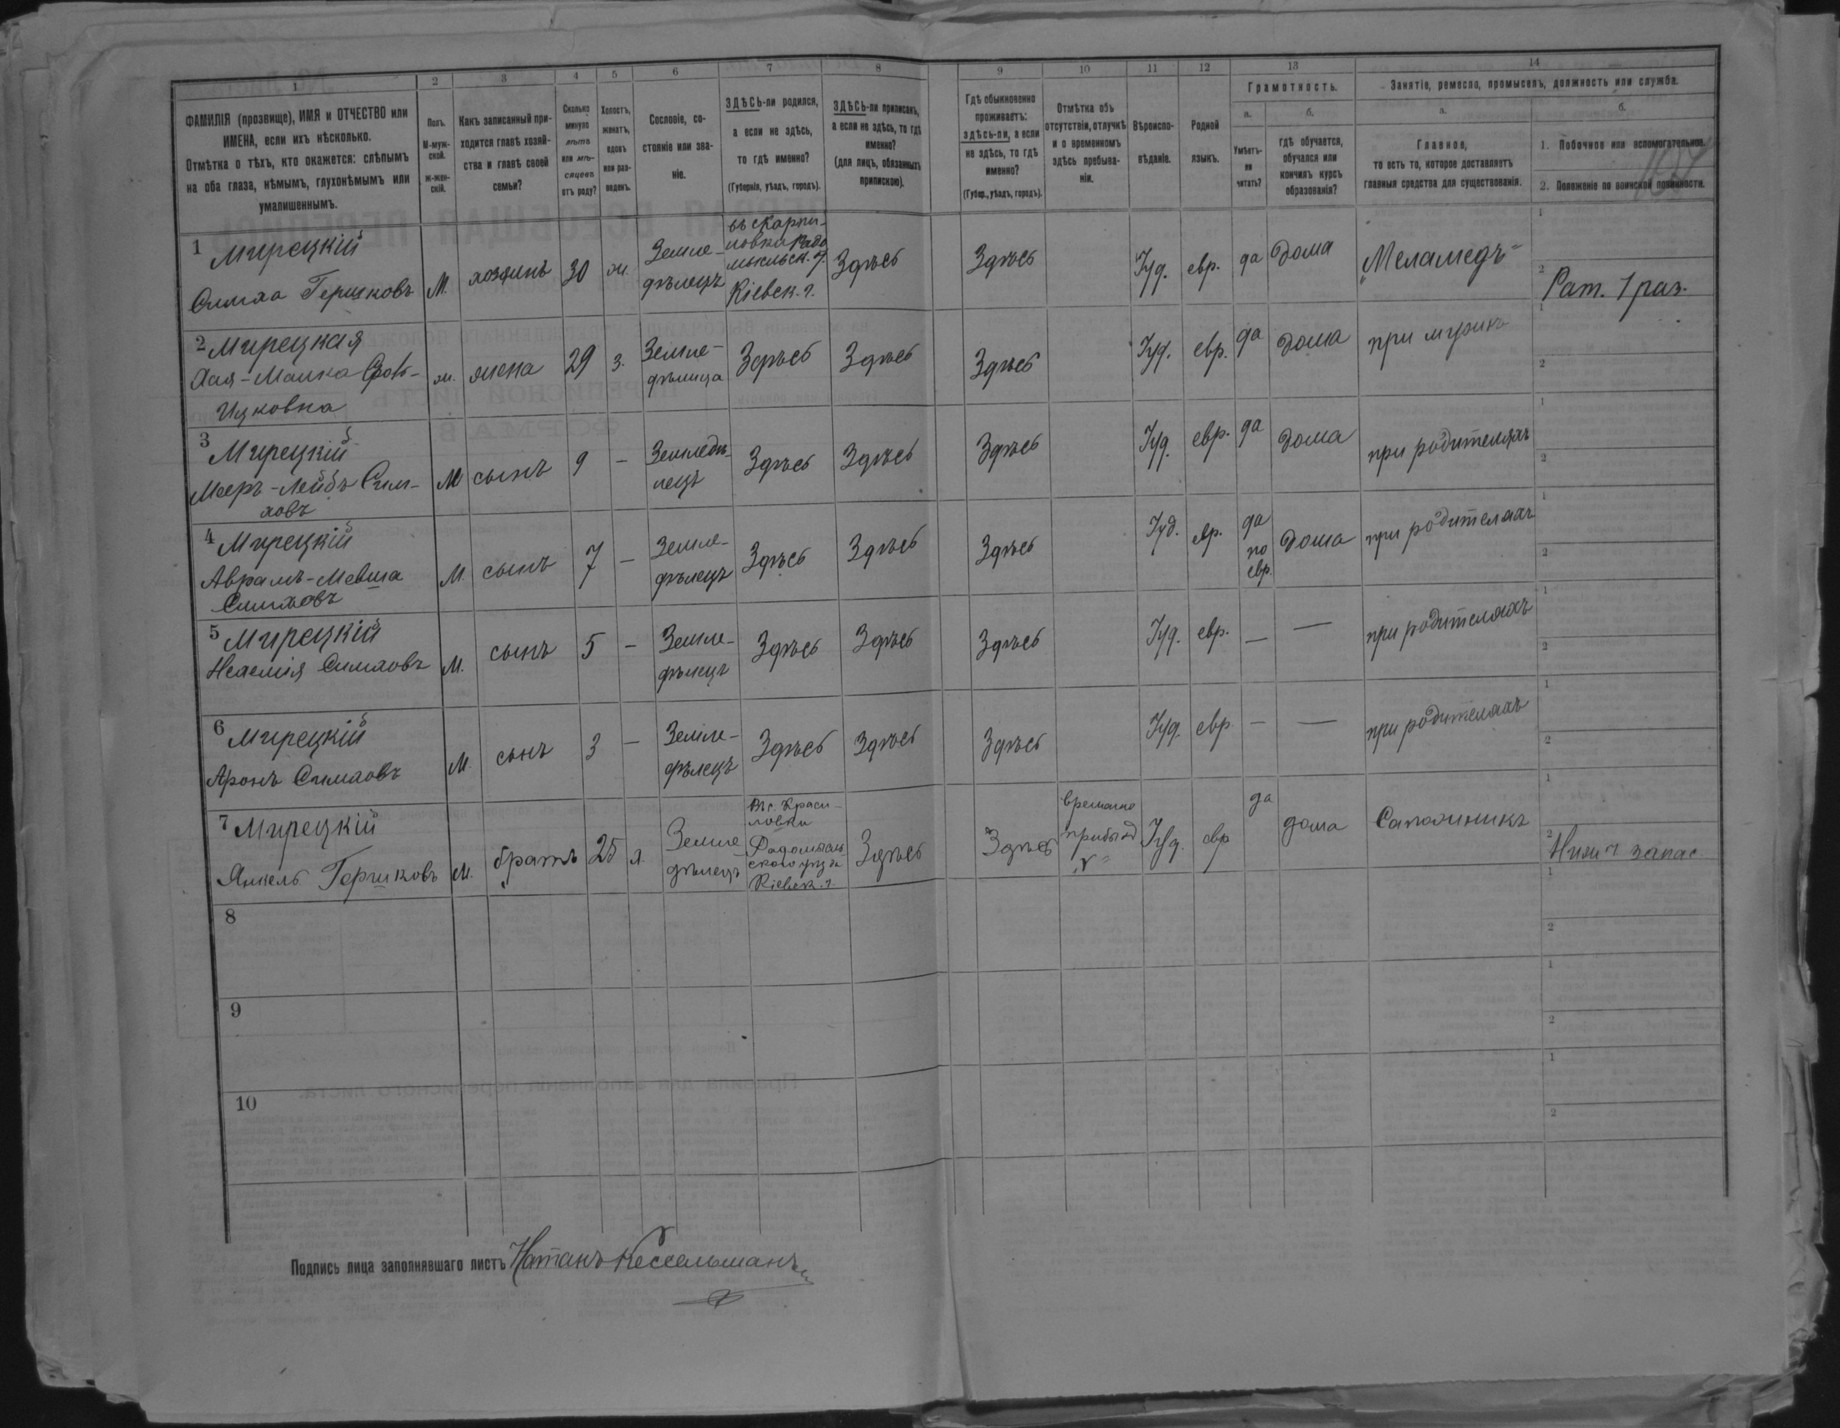 1 2 3 4 5 6 7 8 9 10 11 12 13 14
ФАМИЛІЯ (прозвище), ИМЯ и ОТЧЕСТВО или
ИМЕНА, если ихъ нѣсколько.
Отмѣтка о тѣхъ, кто окажется: слѣпымъ
на оба глаза, нѣмымъ, глухонѣмымъ или
умалишеннымъ.
Полъ.
М-муж-
ской.
Ж-жен-
скій.
Какъ записанный при-
ходится главѣ хозяй-
ства и главѣ своей
семьи?
Сколько
минуло
лѣтъ
или мѣ-
сяцевъ
отъ роду?
Холостъ,
женатъ,
вдовъ
или раз-
веденъ.
Сословіе, со-
стояніе или зва-
ніе.
ЗДѢСЬ-ли родился,
а если не здѣсь,
то гдѣ именно?
(Губернія, уѣздъ, городъ).
ЗДѢСЬ-ли приписанъ,
а если не здѣсь, то гдѣ
именно?
(для лицъ, обязанныхъ
припискою).
Гдѣ обыкновенно
проживаетъ:
здѣсь-ли, а если
не здѣсь, то гдѣ
именно?
(Губер., уѣздъ, городъ).
Отмѣтка объ
отсутствіи, отлучкѣ
и о временномъ
здѣсь пребыва-
ніи.
Вѣроиспо-
вѣданіе.
Родной
языкъ.
Грамотность.
а. б.
Умѣетъ-
ли
читать?
гдѣ обучается,
обучался или
кончилъ курсъ
образованія?
Занятіе, ремесло, промыселъ, должность или служба.
а. б.
Главное,
то есть то, которое доставляетъ
главныя средства для существованія.
1. Побочное или вспомогательное.
2. Положеніе по воинской повинности.
1 Мирецкій
Симха Гершковъ М. хозяинъ 30 ж. Земле-
дѣлецъ
Радо
мысльск. у.
Кіевск. г.
Здѣсь Здѣсь Іуд. евр. да дома „Меламедъ“
1
2 Рат. 1 раз.
2 Мирецкая
Хая-Малка
Ицковна ж. жена 29 з. Земле-
дѣлица Здѣсь Здѣсь Здѣсь Іуд. евр. да дома при мужѣ
1
2
3 Мирецкій
Мееръ-Лейбъ Сим-
ховъ М сынъ 9 — Земледѣ-
лецъ Здѣсь Здѣсь Здѣсь Іуд. евр. да дома при родителяхъ
1
2
4 Мирецкій
Аврамъ-Мевша
Симховъ М. сынъ 7 — Земле-
дѣлецъ Здѣсь Здѣсь Здѣсь Іуд. евр. да
по
евр. дома при родителяхъ
1
2
5 Мирецкій
Нехемія Симховъ М. сынъ 5 — Земле-
дѣлецъ Здѣсь Здѣсь Здѣсь Іуд. евр. — — при родителяхъ
1
2
6 Мирецкій
Аронъ Симховъ М. сынъ 3 — Земле-
дѣлецъ Здѣсь Здѣсь Здѣсь Іуд. евр — — при родителяхъ
1
2
7 Мирецкій
Янкель Гершковъ М. братъ 25 х. Земле
дѣлецъ
Въ с. Краси-
ловки
Радомысль
скаго уѣзд
Кіевск. г.
Здѣсь Здѣсь временно
Іуд. евр да дома Сапожникъ
1
2 Нижн ч запас.
8
1
2
9
1
2
10
1
2
Подпись лица заполнявшаго листъ Натанъ Кессельманъ